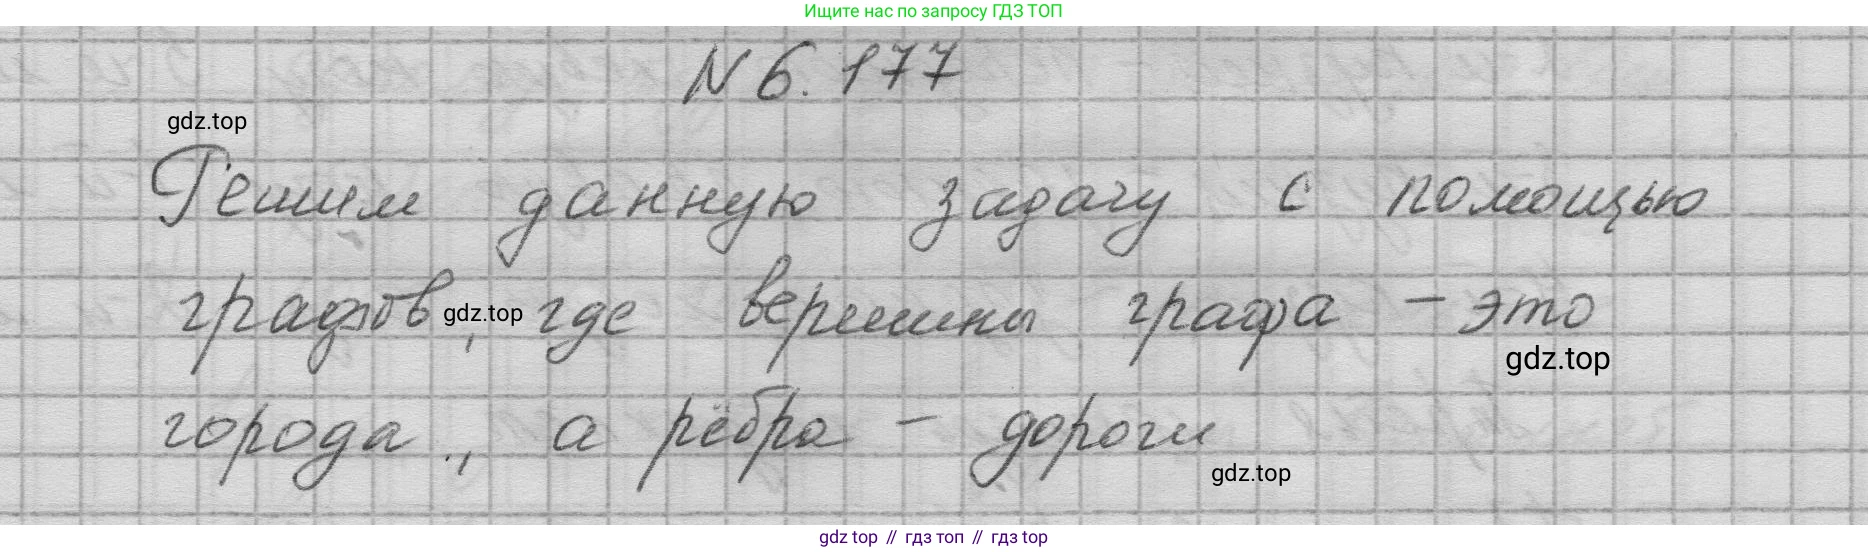 Ищите нас по запросу ГДЗ ТОП
N 6.177
gdz.top
Решим данную задачу с помощью
графов, где вершины графа – это
gdz.top
gdz.top
города, а рёбра – дороги
gdz.top
gdz top // гдз топ // гдз top